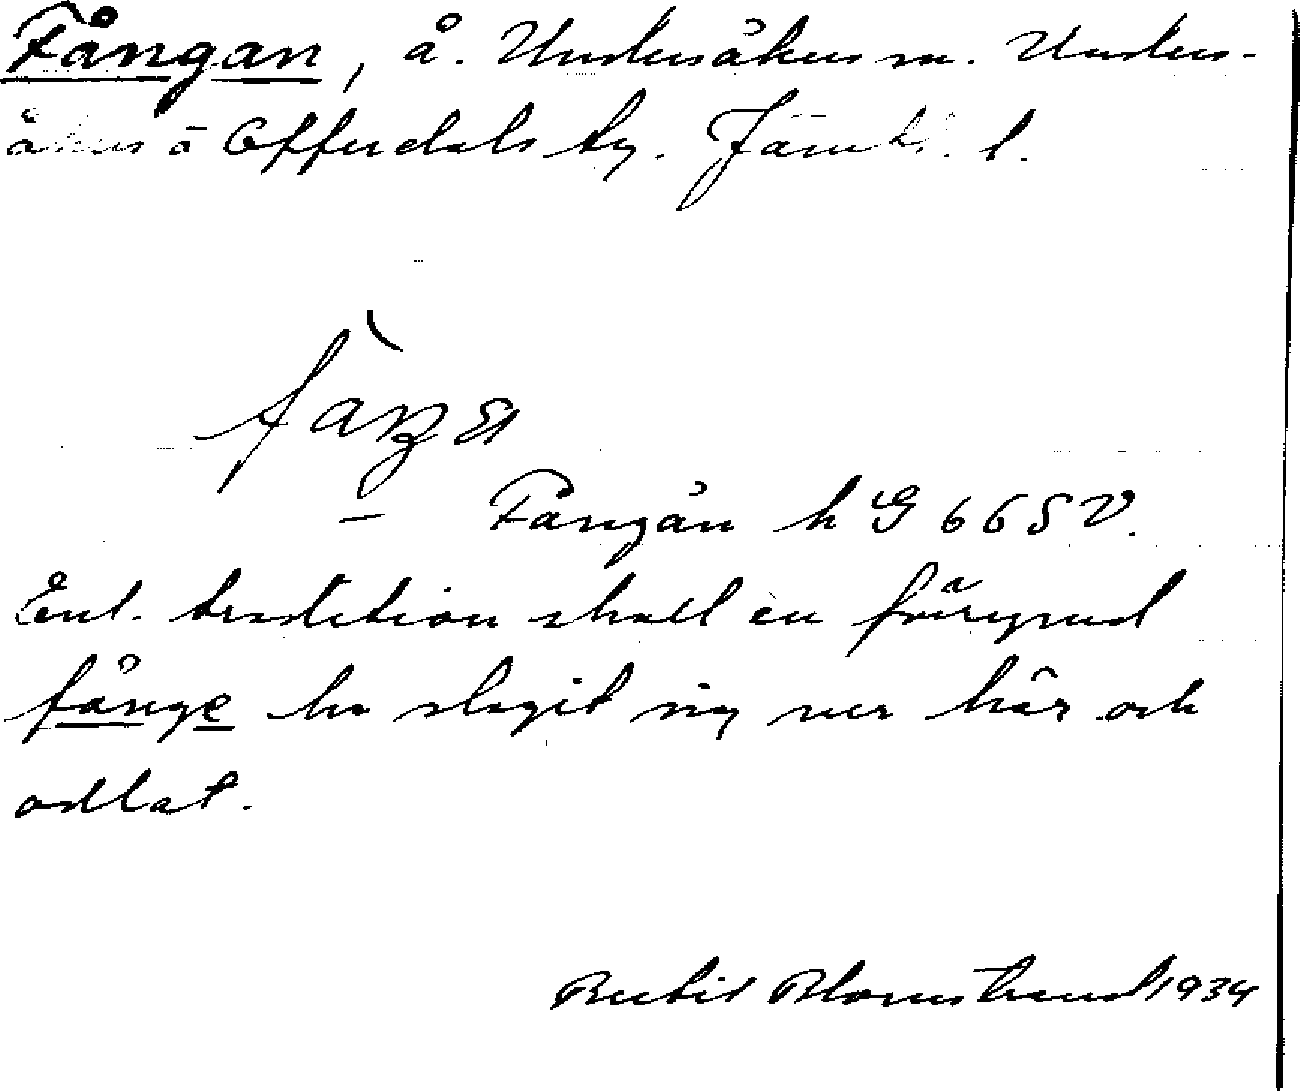 Fångan, å. Undersåkers sn. Unders-
åkers o Offerdals tg. Jämtl. l.
– Fångån h G 66 SV.
Enl. tradition skall en förrymd
fånge ha slagit sig ner här och
odlat.
Bertil Blomstrand 1934